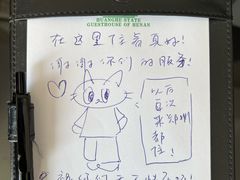 HUANGHE STATE
GUESTHOUSE OF HENAN
在这里住着真好!
谢谢你们的服务!
以后
再次
来郑州
都
住!